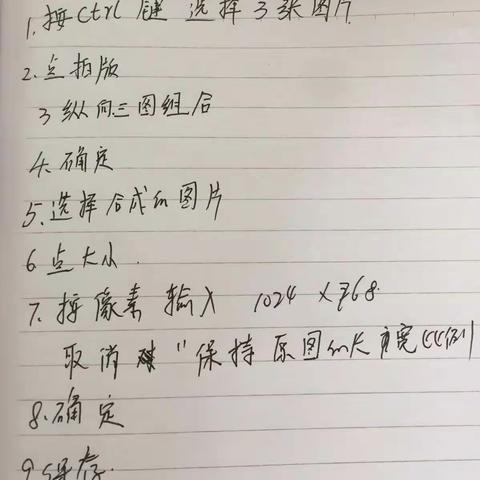 1.按Ctrl键 选择3张图片
2.点拍版
3纵向三图组合
4.确定
5.选择合成的图片
6点大小.
7.按像素 输入 1024 x 768.
取消 "保持原图的长宽比例
8.确定
9保存.